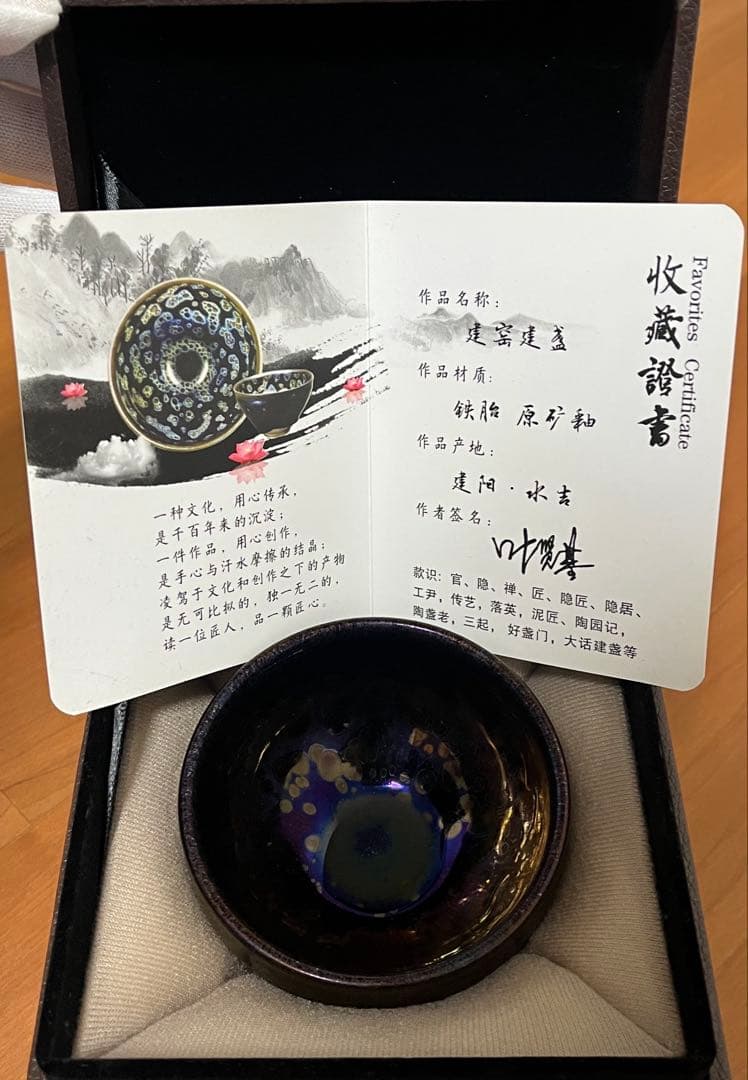 收藏證書
Favorites Certificate
作品名称：
建窑建盏
作品材质：
铁胎 原矿釉
作品产地：
建阳·水吉
作者签名：
款识：官、隐、禅、匠、隐匠、隐居、
工尹，传艺，落英，泥匠、陶园记，
陶盏老，三起， 好盏门，大话建盏等
一种文化，用心传承，
是千百年来的沉淀；
一件作品，用心创作，
是手心与汗水摩擦的结晶；
凌驾于文化和创作之下的产物
是无可比拟的，独一无二的，
读一位匠人，品一颗匠心。